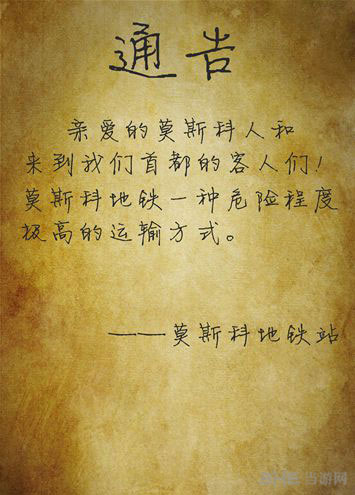 通告
亲爱的莫斯科人和
来到我们首都的客人们!
莫斯科地铁一种危险程度
极高的运输方式。
——莫斯科地铁站
当游网